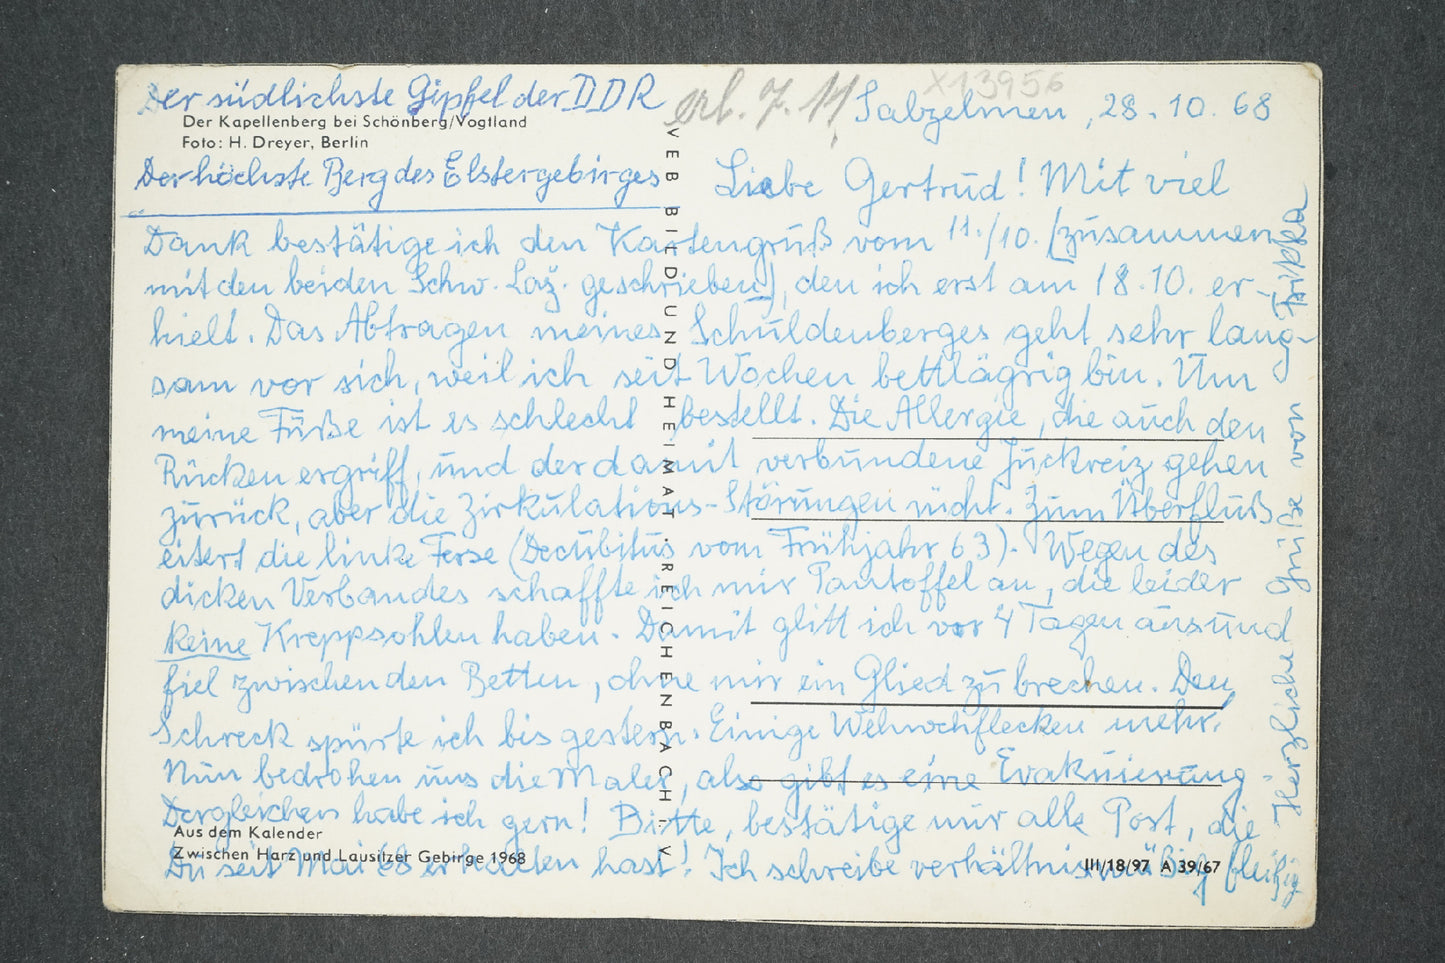 Der südlichste Gipfel der DDR
Der Kapellenberg bei Schönberg/Vogtland
Foto: H. Dreyer, Berlin
Der höchste Berg des Elstergebirges
erh. 7. 11.
X13956
Salzelmen, 28.10.68
Liebe Gertrud! Mit viel
Dank bestätige ich den Kartengruß vom 11./10. (zusammen
mit den beiden Schw. geschrieben), den ich erst am 18.10. er-
hielt. Das Abtragen meines Schuldenberges geht sehr lang-
sam vor sich, weil ich seit Wochen bettlägrig bin. Um
meine Füße ist es schlecht bestellt. Die Allergie, die auch den
Rücken ergriff, und der damit verbundene Juckreiz gehen
zurück, aber die Zirkulations-Störungen nicht. Zum Überfluß
eitert die linke Ferse (Decubitus vom Frühjahr 63). Wegen des
dicken Verbandes schaffte ich mir Pantoffel an, die leider
keine Kreppsohlen haben. Damit glitt ich vor 4 Tagen aus und
fiel zwischen den Betten, ohne mir ein Glied zu brechen. Den
Schreck spürte ich bis gestern. Einige Wehwehflecken mehr.
Nun bedrohen uns die Maler, also gibt es eine Evakuierung
Dergleichen habe ich gern! Bitte, bestätige mir alle Post, die
Du seit Mai 68 erhalten hast! Ich schreibe verhältnismäßig fleißig
Herzliche Grüße von
VEB BILD UND HEIMAT · REICHENBACH I. V.
Aus dem Kalender
Zwischen Harz und Lausitzer Gebirge 1968
III/18/97 A 39/67